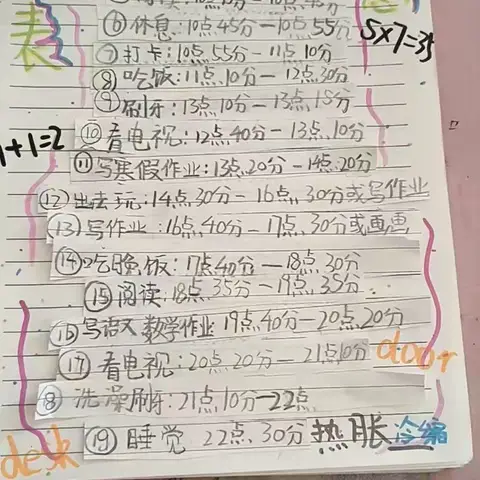 表
⑥休息:10点45分—10点55分
5×7=35
⑦打卡:10点55分—11点10分
⑧吃饭:11点10分—12点30分
⑨刷牙:13点10分—13点15分
1+1=2
⑩看电视:12点40分—13点10分
⑪写寒假作业:13点20分—14点20分
⑫出去玩:14点30分—16点30分或写作业
⑬写作业:16点40分—17点30分或画画
⑭吃晚饭:17点40分—18点30分
⑮阅读:18点35分—19点35分
⑯写语文数学作业19点40分—20点20分
⑰看电视:20点20分—21点10分
door
⑱洗澡刷牙:21点10分—22点
⑲睡觉 22点30分 热胀冷缩
desk